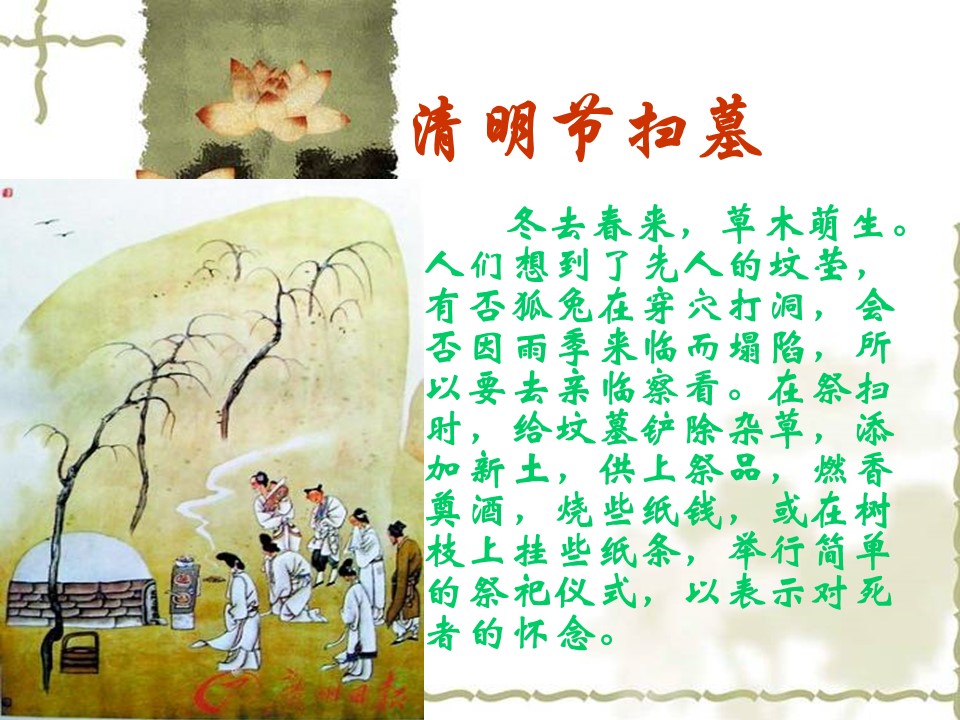 清明节扫墓
冬去春来，草木萌生。
人们想到了先人的坟茔，
有否狐兔在穿穴打洞，会
否因雨季来临而塌陷，所
以要去亲临察看。在祭扫
时，给坟墓铲除杂草，添
加新土，供上祭品，燃香
奠酒，烧些纸钱，或在树
枝上挂些纸条，举行简单
的祭祀仪式，以表示对死
者的怀念。
广州日报